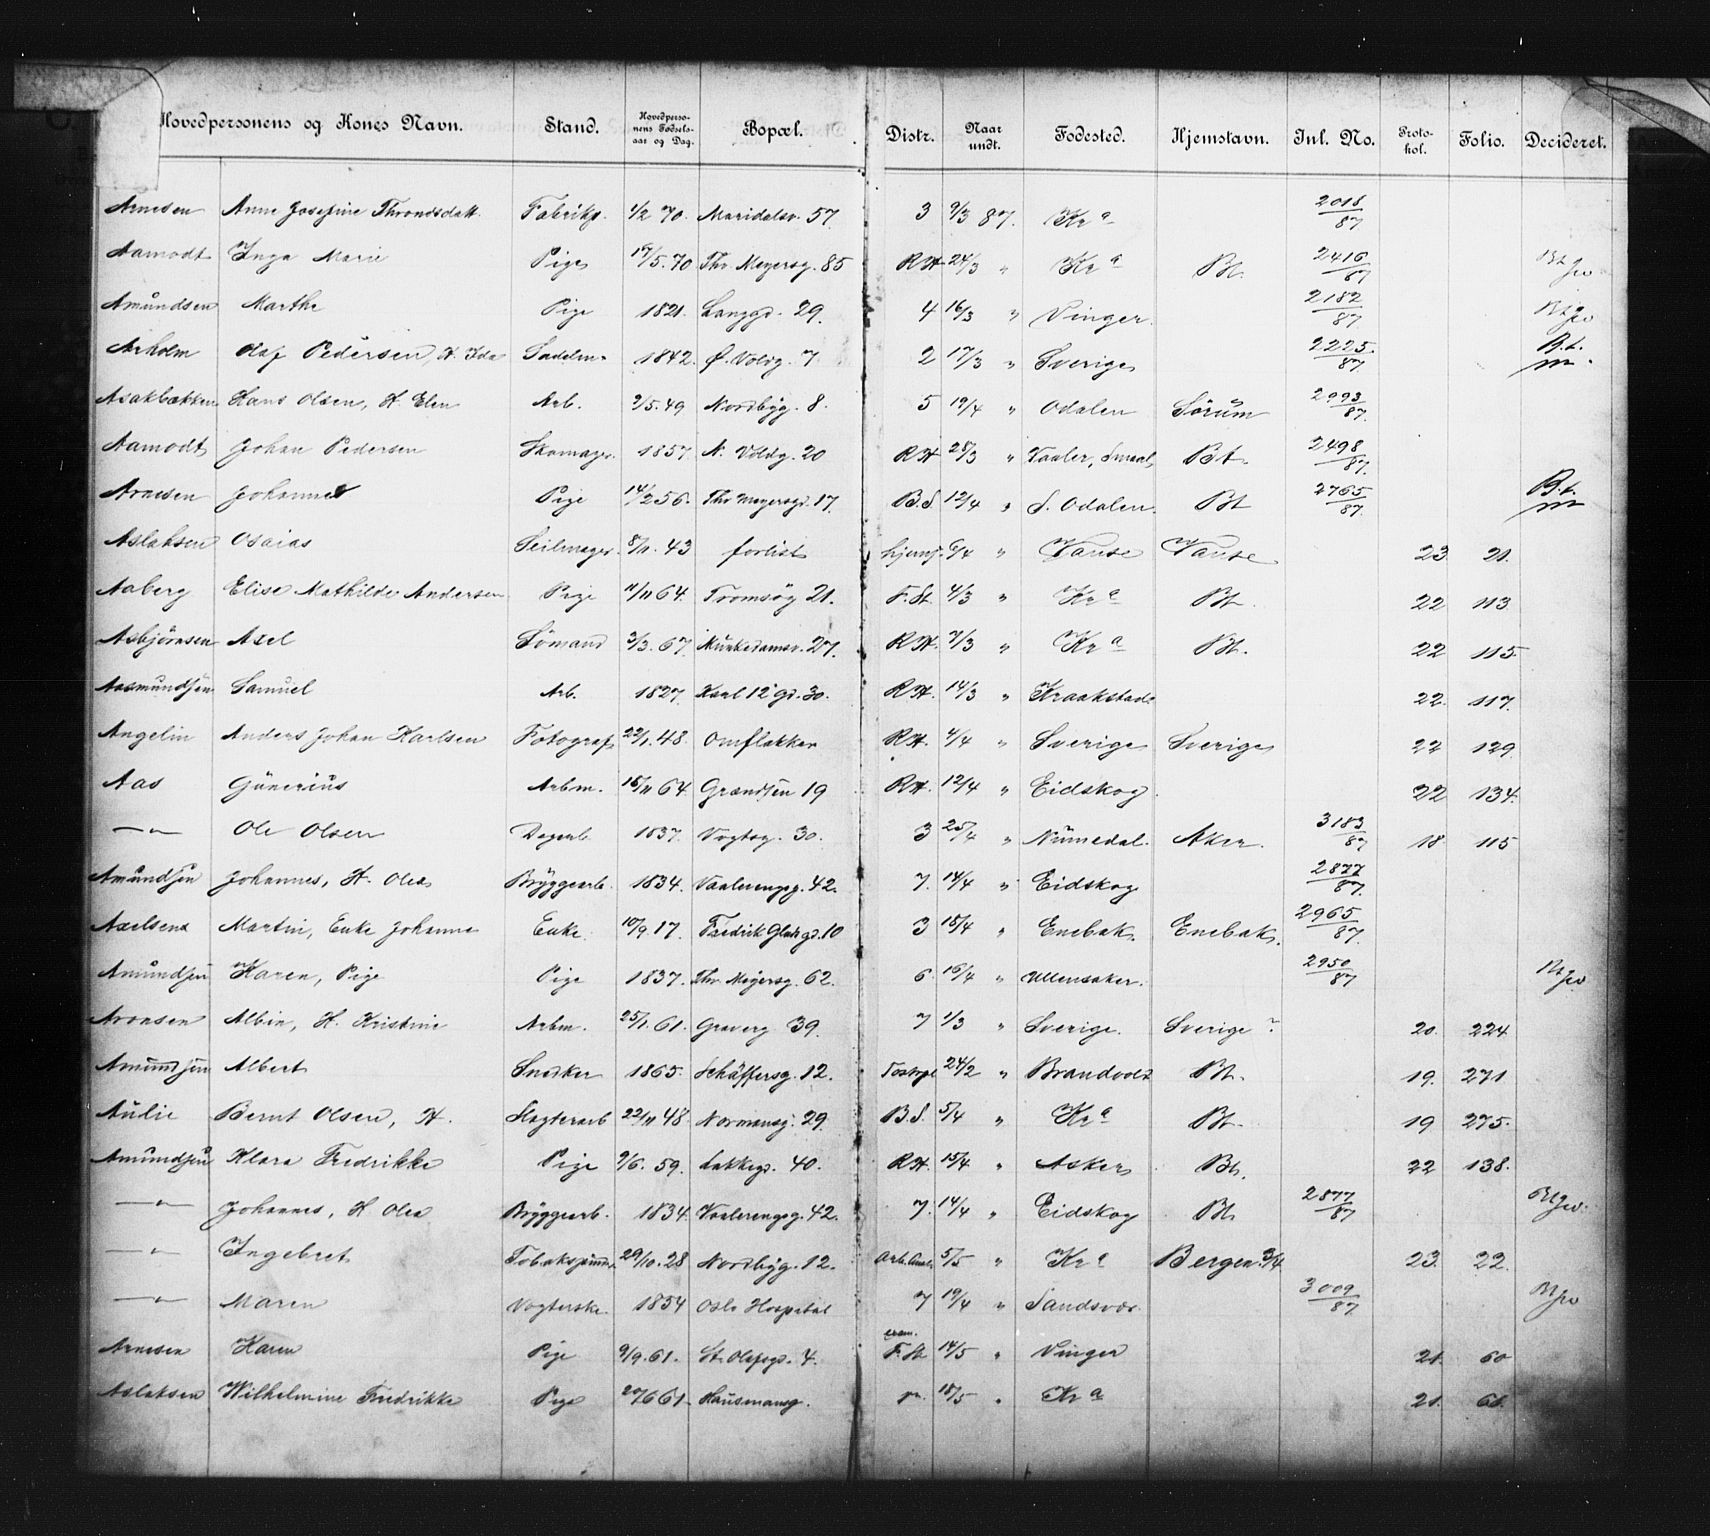 Hovedpersonens og Kones Navn. Stand. Hovedpersonens Fødselsaar og Dag. Bopæl. Distr. Naar undt. Fødested. Hjemstavn. Inl. No. Protokol. Folio. Decideret.
Arnesen Anne Josefine Throndsdatt. Fabrikp. 1/2 70. Maridalsv. 57. 3 9/3 87. Kr a 2018/87
Aamodt Inga Marie Pige 17/5.70 Thv. Meyersg. 85 RH 24/3 " Kr a Bt. 2416/87
Amundsen Marthe Pige 1821. Langgd. 29. 4 16/3 " Vinger. 2182/87
Arholm Olaf Pedersen, H. Ida Sadelm. 1842. Ø. Voldg. 7 2 17/3 " Sverige 2225/87 B.t.
Asakbækken Hans Olsen, H. Elen Arb. 2/5.49 Nordbyg. 8. 5 19/4 " Odalen Sørum 2993/87
Aamodt Johan Pedersen Skomager. 1857. N. Voldg. 20 RH 28/3 " Vaaler, Smaal. Bt. 2498/87
Arnesen Johanne Pige 14/2 56. Thv Meyersgd. 17. B.S. 12/4 " S. Odalen. Bt 2765/87 B.t.
Aslaksen Osaias Seilmager. 8/11. 43 forlist hjemf. 6/4 " Vanse Vanse 23. 21.
Aaberg Elise Mathilde Andersen Pige 11/11 64. Tromsøg 21. F.St. 4/3 " Kr a Bt. 22 113
Asbjørnsen Axel Sømand 3/3. 67. Munkedamsv. 27. RH. 7/3 " Kr a Bt. 22 115.
Aasmundsen Samuel Arb. 1827. Karl 12 gd. 30. RH. 14/3 " Kraakstad 22. 117.
Angelin Anders Johan Karlsen Fotograf 22/1.48. Omflakker RH. 4/4 " Sverige Sverige 22 129
Aas Gunerius Arbm. 15/11 64. Grændsen 19 RH. 12/4 " Eidskog. 22 134.
—"— Ole Olsen Dagarb. 1837. Vogtsg. 30. 3 25/4 " Numedal. Aker. 3183/87 18. 115
Amundsen Johannes, H. Olea Bryggearb. 1834. Vaalerengsg. 42. 7. 14/4 " Eidskog 2877/87.
Axelsen Martin, Enke Johanne Enke. 10/9.17. Fredrik Gladsgd. 10 3 15/4 " Enebak. Enebak. 2965/87.
Amundsen Karen, Pige Pige 1837. Thv. Meyersg. 62. 6. 16/4 " Ullensaker. 2950/87
Aronsen Albin, H. Kristine Arbm. 25/1. 61. Graverg 39. 7 1/3 " Sverige. Sverige ? 20. 224
Amundsen Albert Snedker 1865. Schäffersg. 12. 24/2 " Brandvold Bt. 19. 271
Aulie Bernt Olsen, H. Slagterarb 22/11 48. Normansg. 29. B.S. 5/4 " Kr a Bt. 19 275.
Amundsen Klara Fredrikke Pige 9/6. 59. Lakkegd. 40. RH. 15/4 " Asker Bt. 22 138.
—"— Johannes, H Olea Bryggearb. 1834. Vaalerengsg. 42. 7. 14/4 " Eidskog Bt 2877/87
—"— Ingebret Tobakspinder 29/10.28 Nordbyg. 12. Arb.Anst. 5/5 " Kr a Bergen 3/4 23. 22.
—"— Maren Vogterske. 1854 Oslo Hospital 7 19/4 " Sandsvær. 3009/87.
Arnesen Karen Pige 9/9.61. St. Olafsgd. 4. F.St 14/5 " Vinger 21. 60
Aslaksen Wilhelmine Fredrikke Pige 20/6 61. Hausmansg. 18/5 " Kr a 21. 61.